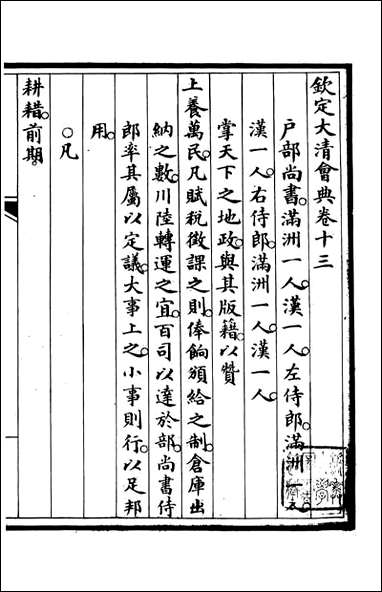 欽定大清會典卷十三
戶部尚書滿洲一人漢一人左侍郎滿洲一人
漢一人右侍郎滿洲一人漢一人
掌天下之地政與其版籍以贊
上養萬民凡賦稅徵課之則俸餉頒給之制倉庫出
納之數川陸轉運之宜百司以達於部尚書侍
郎率其屬以定議大事上之小事則行以足邦
用
○凡
耕耤前期